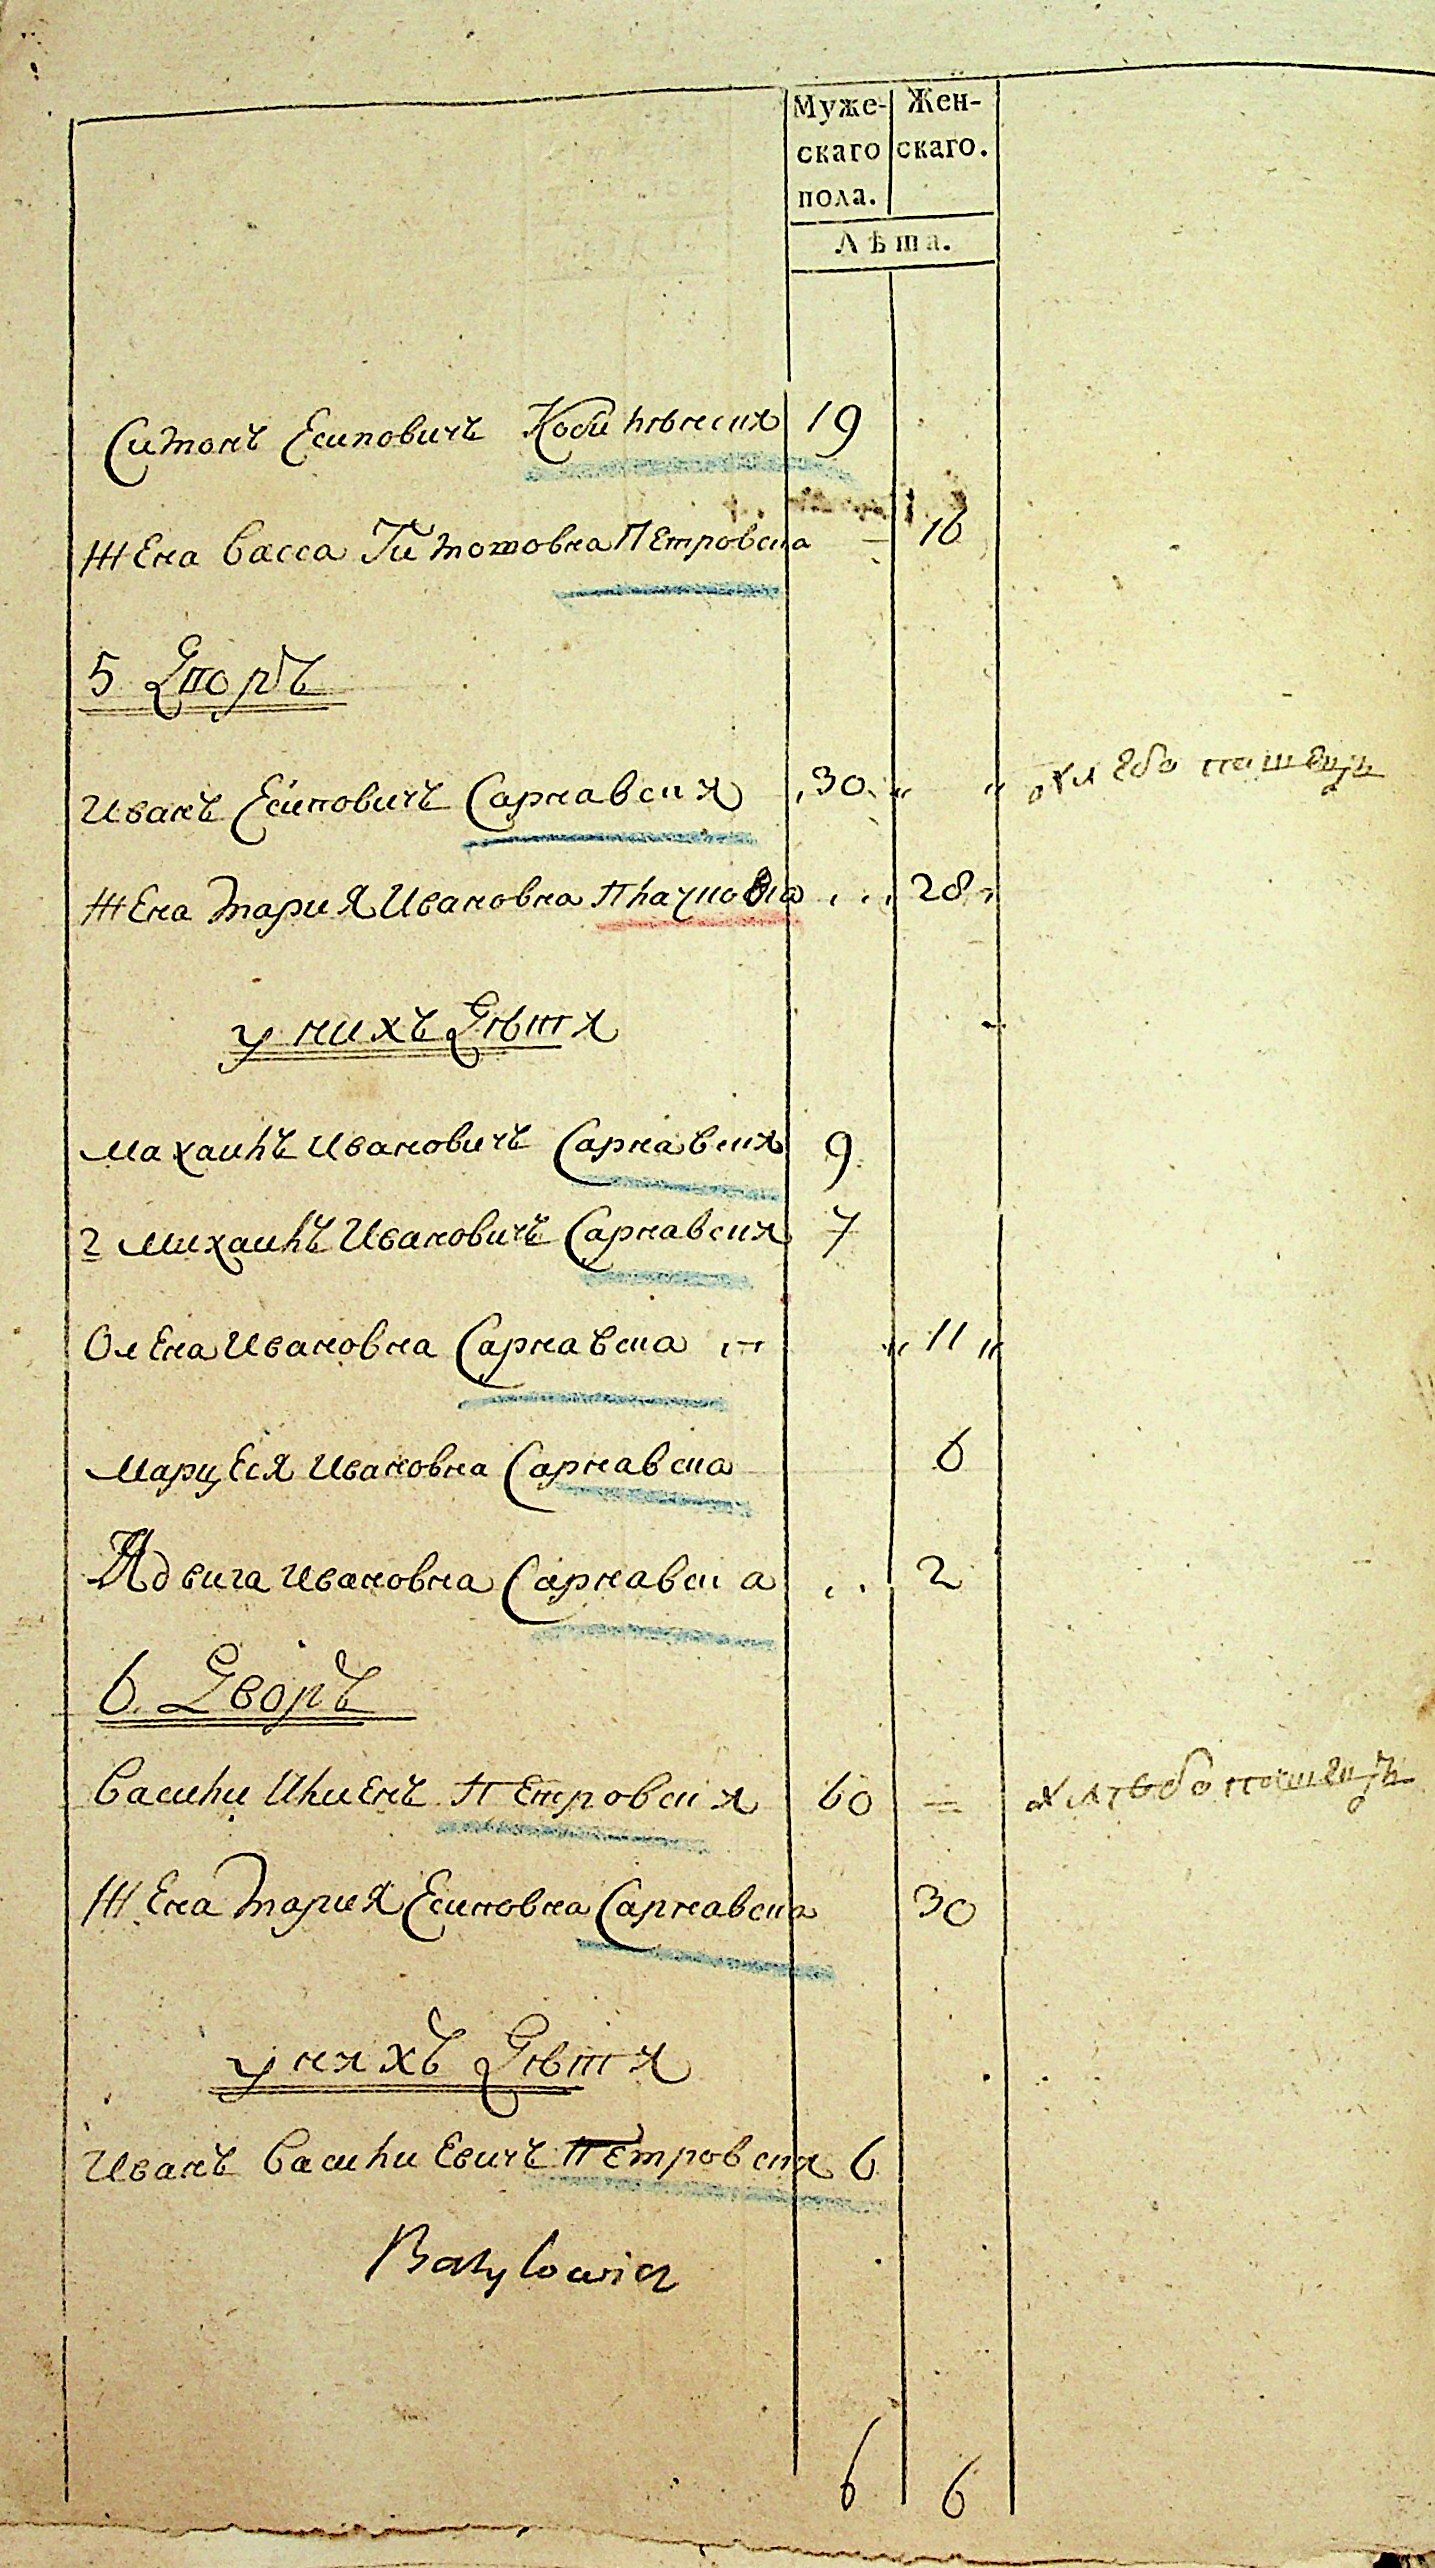 Муже- Жен-
скаго скаго.
пола.
Лѣта.
Симонъ Есиповичъ 19
Жена Васса Тимотовна Петровска 16
5 Дворъ
Иванъ Есиповичъ Сарнавскя 30 хлебо пашецъ
Жена Мария Ивановна 28
у нихъ Дѣтя
Махаилъ Ивановичъ Сарнавскя 9
2 Михаилъ Ивановичъ Сарнавскя 7
Олена Ивановна Сарнавска 11
Марцеся Ивановна Сарнавска 6
Ядвига Ивановна Сарнавска 2
6. Дворъ
Васили Илиенъ Петровскя 60 хлѣбо пашецъ
Жена Мария Есиповна Сарнавска 30
у няхъ Дѣтя
Иванъ Василиевичъ Петровскя 6
6 6